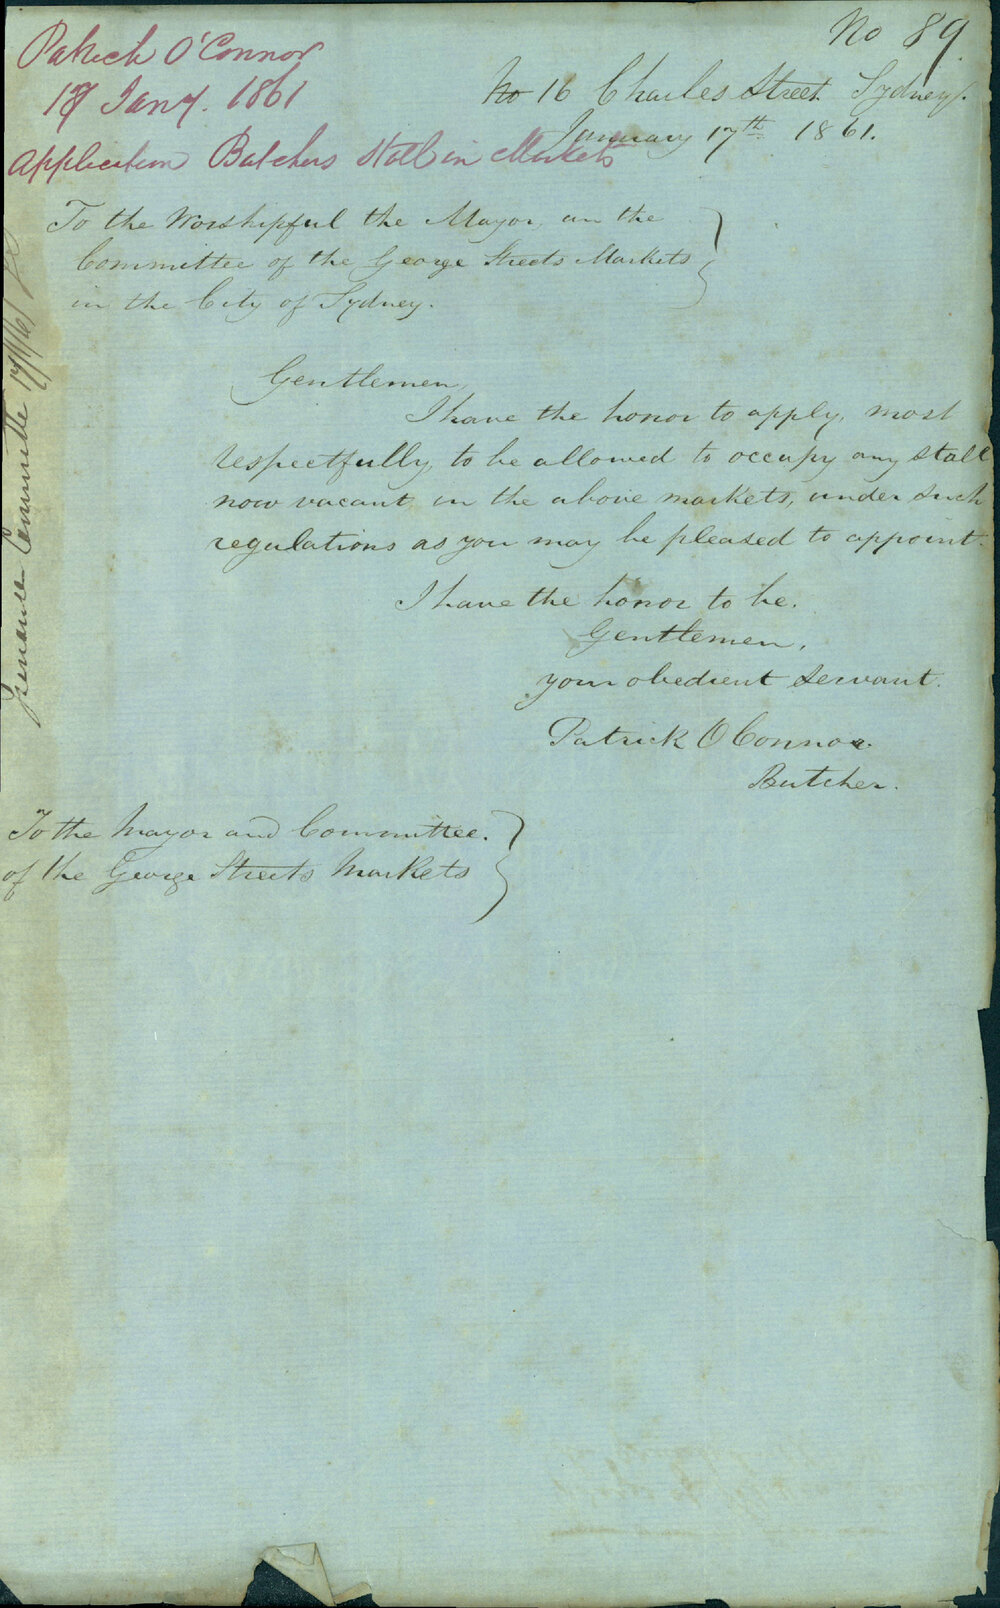 No 89
Patrick O'Connor
17 Jany. 1861
Application Butchers Stall in Markets
No 16 Charles Street Sydney.
January 17th 1861.
To the Worshipful the Mayor, an the
Committee of the George Streets Markets
in the City of Sydney.
Gentlemen,
I have the honor to apply, most
respectfully, to be allowed to occupy any stall
now vacant in the above markets, under such
regulations as you may be pleased to appoint.
I have the honor to be.
Gentlemen,
your obedient servant.
Patrick OConnor.
Butcher.
To the Mayor and Committee.
of the George Streets Markets
Committee 17/1/61